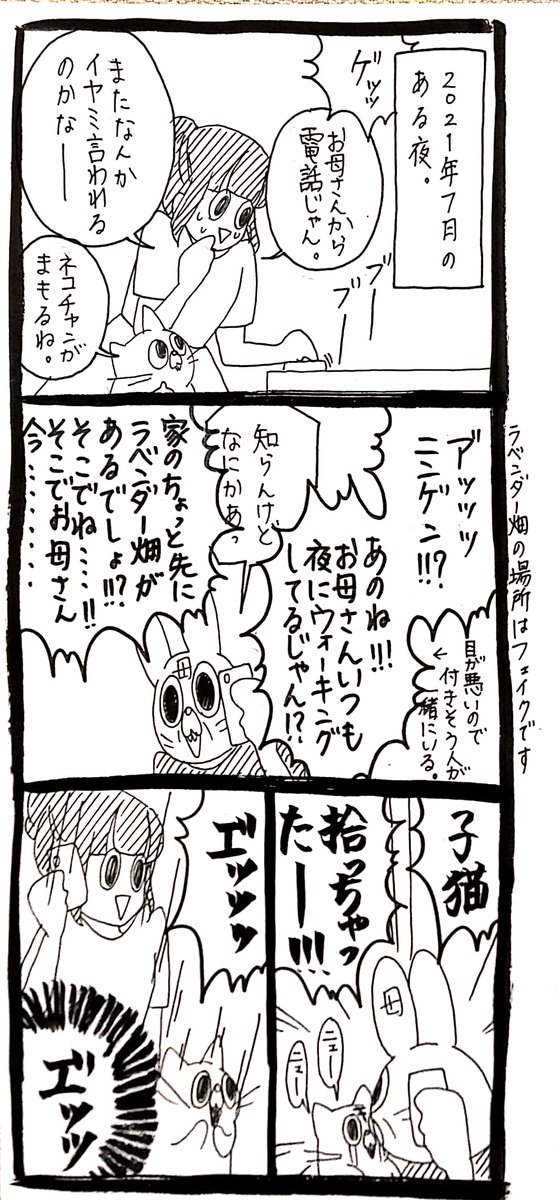 2021年7月の
ある夜。
ゲッッ
お母さんから
電話じゃん。
ブーー
ブーー
またなんか
イヤミ言われる
のかなー
ネコチャンが
まもるね。
アッッッ
ニンゲン!!!?
目が悪いので
付きそう人が
一緒にいる。
←
あのね!!!
お母さんいつも
夜にウォーキング
してるじゃん!?
知らんけど
なにかあっ
家のちょっと先に
ラベンダー畑が
あるでしょ!!?
そこでね…!!
そこでお母さん
今………
ラベンダー畑の場所はフェイクです
子猫
拾っちゃっ
たー!!!
ニュー
ニュー
エ゛ッッッ
エ゛ッッ